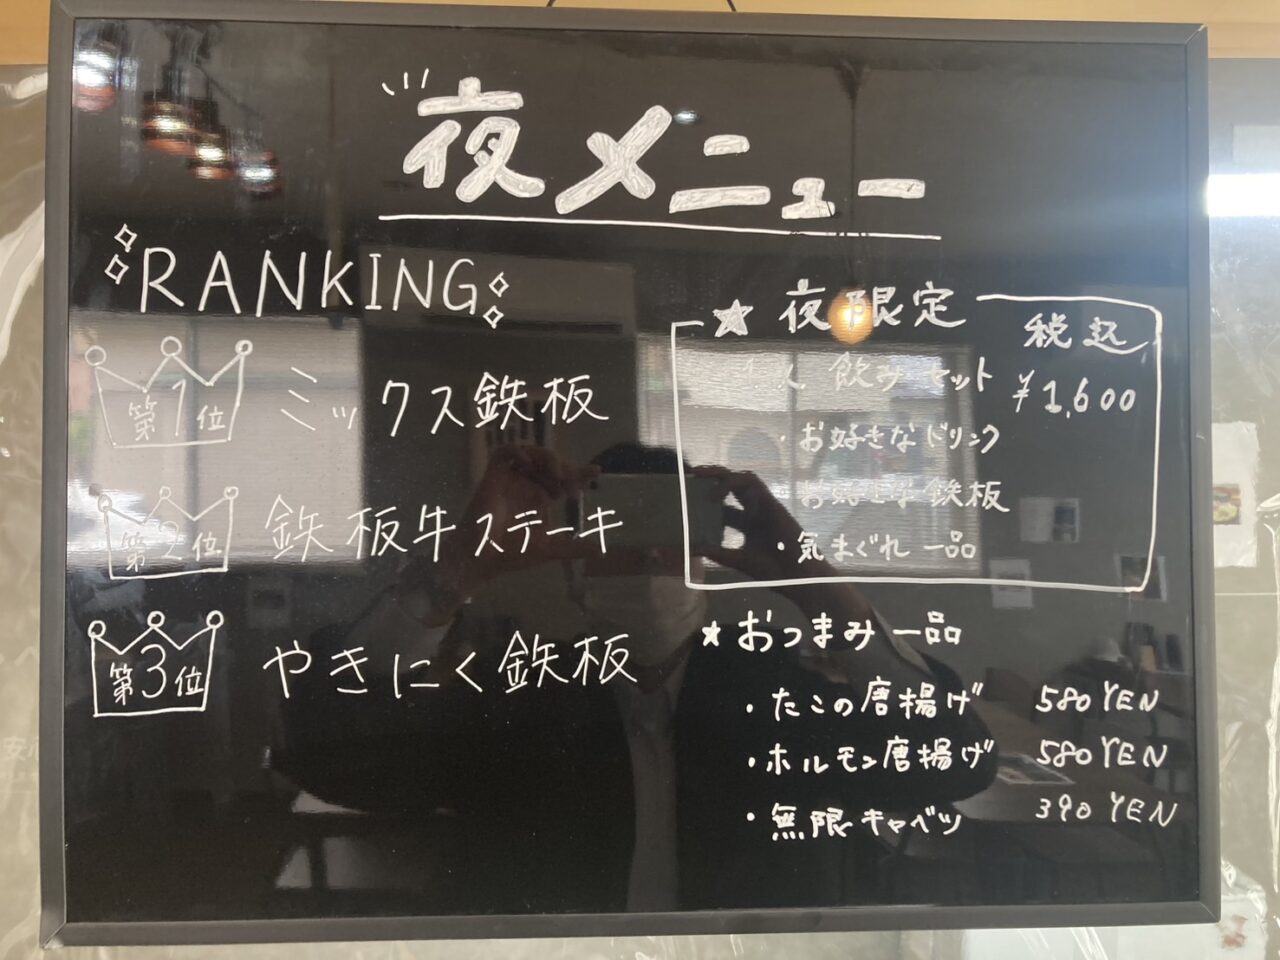 夜メニュー
RANKING
第1位 ミックス鉄板
第2位 鉄板牛ステーキ
第3位 やきにく鉄板
★ 夜限定 税込
1人飲みセット ¥1,600
・お好きなドリンク
・お好きな鉄板
・気まぐれ一品
★おつまみ一品
・たこの唐揚げ 580YEN
・ホルモン唐揚げ 580YEN
・無限キャベツ 390YEN